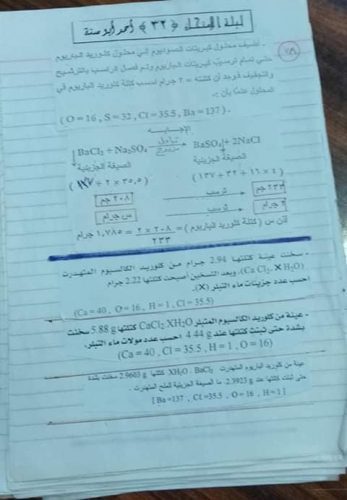 ليلة الامتحان ﴿ ٣٢ ﴾ أحمد أبو سنة
أضيف محلول كبريتات الصوديوم إلى محلول كلوريد الباريوم
حتى تمام ترسيب كبريتات الباريوم وتم فصل الراسب بالترشيح
والتجفيف فوجد أن كتلته = ٢ جرام احسب كتلة كلوريد الباريوم في
المحلول علما بأن :-
( O = 16 , S = 32 , Cl = 35.5 , Ba = 137 ) .
الإجابــــة
BaCl₂ + Na₂SO₄ BaSO₄ + 2NaCl
الصيغة الجزيئية الصيغة الجزيئية
( ١٣٧ + ٢ × ٣٥,٥ ) ( ١٣٧ + ٣٢ + ١٦ × ٤ )
٢٠٨ جم ترسب ٢٣٣ جم
س جرام ترسب ٢ جرام
إذن س ( كتلة كلوريد الباريوم ) = ٢ × ٢٠٨ / ٢٣٣ = ١,٧٨٥ جرام
- سخنت عينة كتلتها 2.94 جرام من كلوريد الكالسيوم المتهدرت
(Ca Cl₂. X H₂O) وبعد التسخين أصبحت كتلتها 2.22 جرام
احسب عدد جزيئات ماء التبلر (X).
(Ca = 40 , O = 16 , H = 1 , Cl = 35.5)
- عينة من كلوريد الكالسيوم المتبلر CaCl₂ XH₂O كتلتها 5.88 g سخنت
بشدة حتى ثبتت كتلتها عند 4.44 g احسب عدد مولات ماء التبلر.
(Ca = 40 , Cl = 35.5 , H = 1 , O = 16)
عينة من كلوريد الباريوم المتهدرت XH₂O . BaCl₂ كتلتها 2.9603 g سخنت بشدة
حتى ثبات كتلتها عند 2.3923 g. ما الصيغة الجزيئية للملح المتهدرت .
[ Ba =137 , Cl =35.5 , O = 16 , H = 1 ]